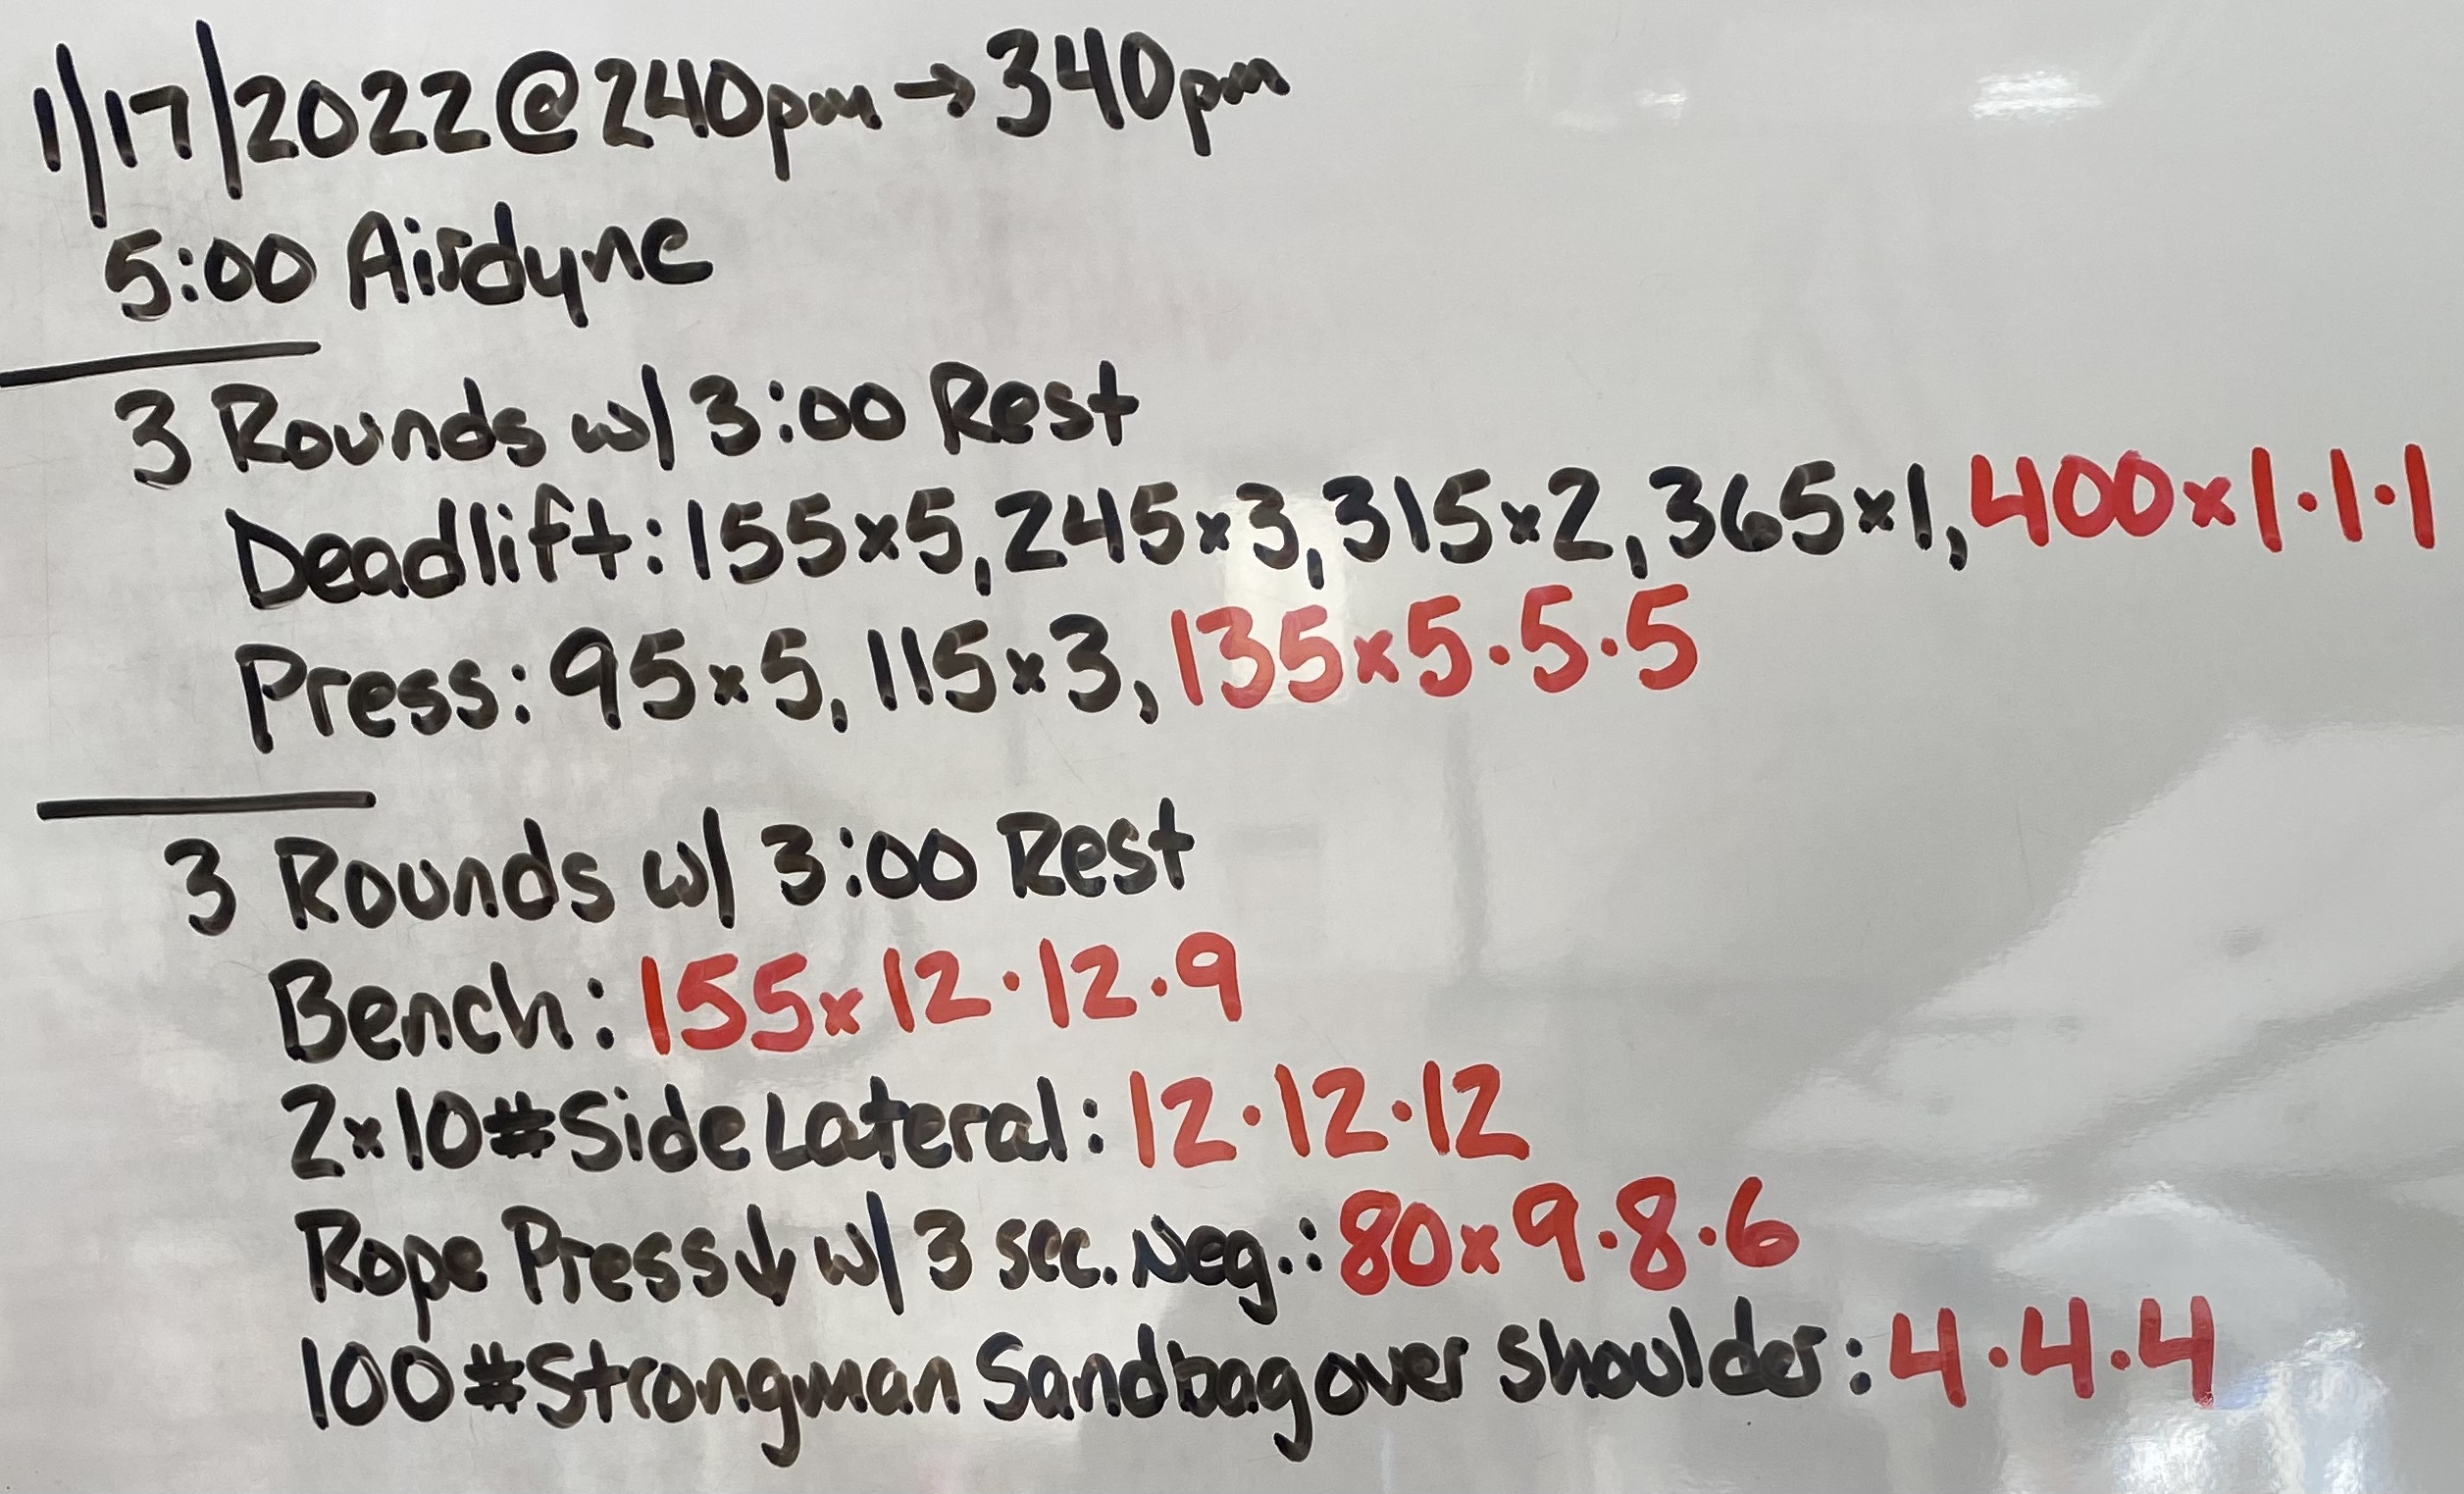 1/17/2022@240pm→340pm
5:00 Airdyne
3 Rounds w/ 3:00 Rest
Deadlift: 155×5, 245×3, 315×2, 365×1, 400×1·1·1
Press: 95×5, 115×3, 135×5·5·5
3 Rounds w/ 3:00 Rest
Bench: 155×12·12·9
2×10# Side Lateral: 12·12·12
Rope Press↓ w/ 3 sec. Neg.: 80×9·8·6
100# Strongman Sandbag over shoulder: 4·4·4